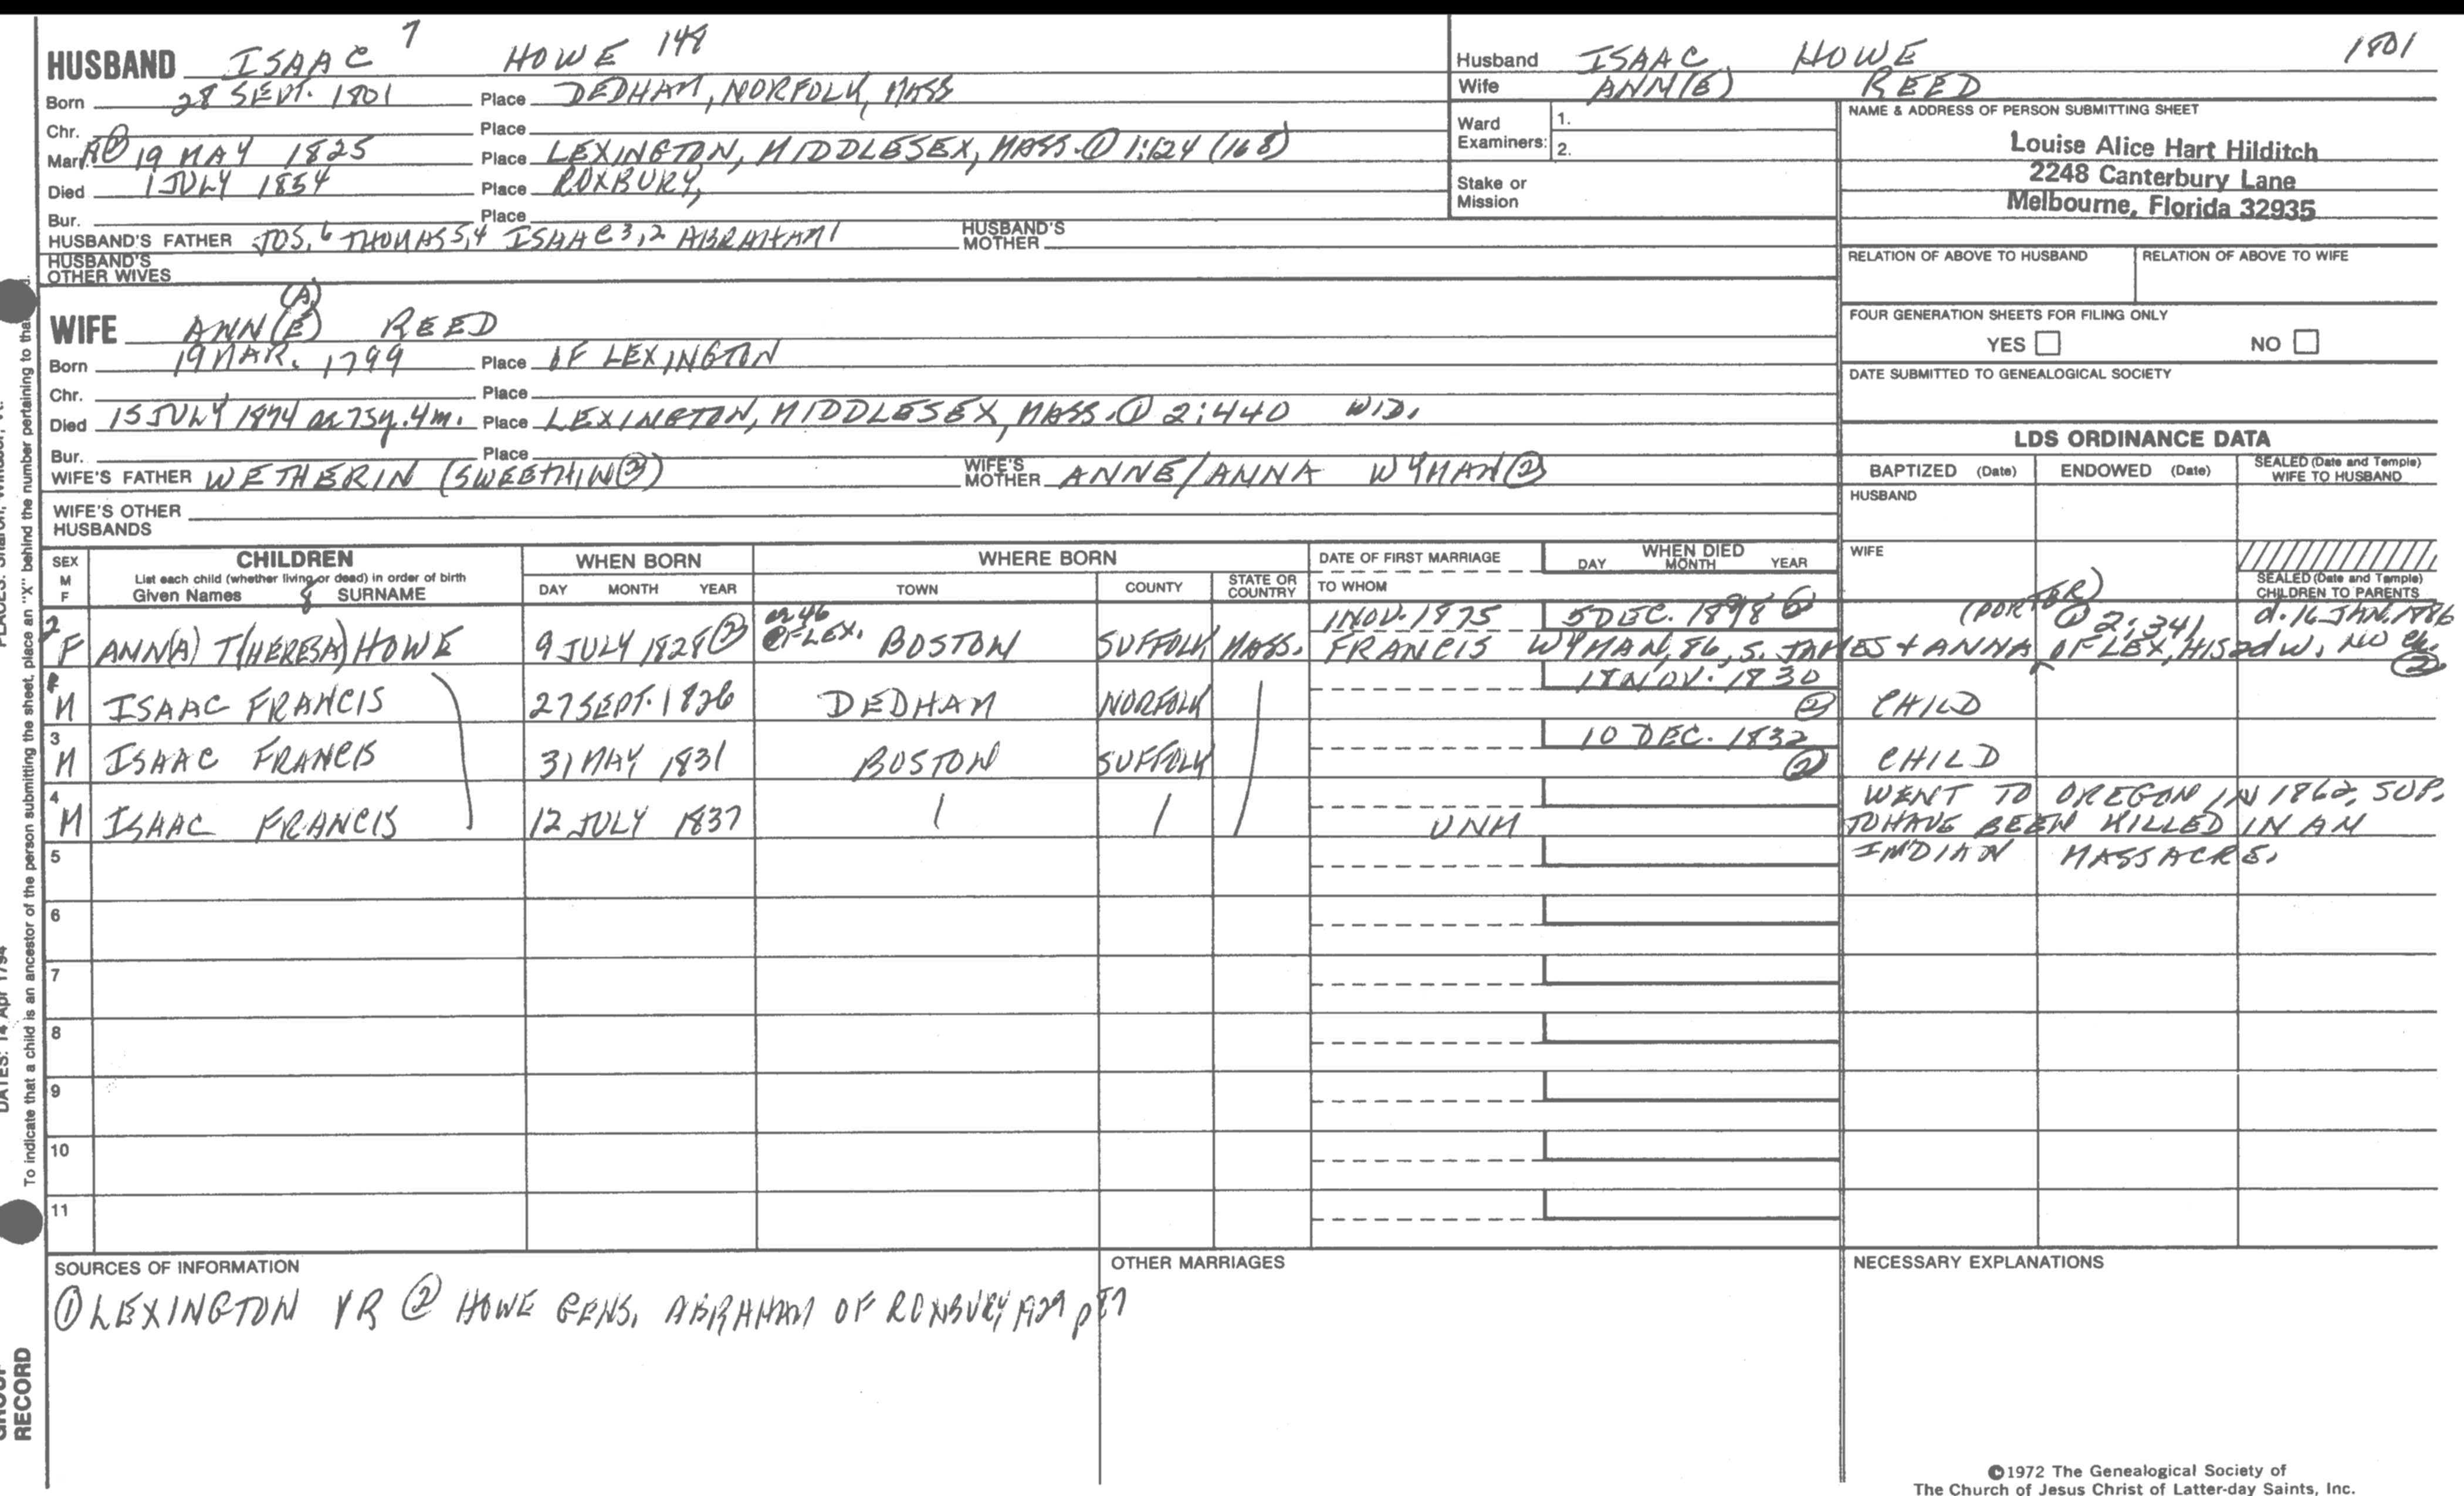 HUSBAND ISAAC 7 HOWE 148
Born 28 SEPT. 1801 Place DEDHAM, NORFOLK, MASS
Chr. Place
Marr. 19 MAY 1825 Place LEXINGTON, MIDDLESEX, MASS. ① 1:124 (168)
Died 1 JULY 1854 Place ROXBURY,
Bur. Place
HUSBAND'S FATHER JOS,6 THOMAS5,4 ISAAC3,2 ABRAHAM1 HUSBAND'S MOTHER
HUSBAND'S OTHER WIVES
Husband ISAAC HOWE 1801
Wife ANN(E) REED
Ward Examiners: 1.
2.
Stake or Mission
NAME & ADDRESS OF PERSON SUBMITTING SHEET
Louise Alice Hart Hilditch
2248 Canterbury Lane
Melbourne, Florida 32935
RELATION OF ABOVE TO HUSBAND RELATION OF ABOVE TO WIFE
FOUR GENERATION SHEETS FOR FILING ONLY
YES NO
DATE SUBMITTED TO GENEALOGICAL SOCIETY
(A)
WIFE ANN(E) REED
Born 19 MAR. 1799 Place OF LEXINGTON
Chr. Place
Died 15 JULY 1874 ae 75y. 4m. Place LEXINGTON, MIDDLESEX, MASS. ① 2:440 WID.
Bur. Place
WIFE'S FATHER WETHERIN (SWEETHIN②) WIFE'S MOTHER ANNE/ANNA WYMAN②
WIFE'S OTHER HUSBANDS
LDS ORDINANCE DATA
BAPTIZED (Date) ENDOWED (Date) SEALED (Date and Temple) WIFE TO HUSBAND
HUSBAND
WIFE
SEALED (Date and Temple) CHILDREN TO PARENTS
SEX M F CHILDREN
List each child (whether living or dead) in order of birth
Given Names 8 SURNAME
WHEN BORN DAY MONTH YEAR
WHERE BORN TOWN COUNTY STATE OR COUNTRY
DATE OF FIRST MARRIAGE
TO WHOM
WHEN DIED DAY MONTH YEAR
ae 46 1 NOV. 1875 5 DEC. 1898 ② (PORTER) ① 2:341 d. 16 JAN. 1886
2 F ANN(A) T(HERESA) HOWE 9 JULY 1828② OF LEX. BOSTON SUFFOLK MASS. FRANCIS WYMAN, 86, S. JAMES + ANNA OF LEX, HIS 2d W. NO ch. ②
M ISAAC FRANCIS 27 SEPT. 1826 DEDHAM NORFOLK 18 NOV. 1830 ② CHILD
3 M ISAAC FRANCIS 31 MAY 1831 BOSTON SUFFOLK 10 DEC. 1832 ② CHILD
4 M ISAAC FRANCIS 12 JULY 1837 UNM
WENT TO OREGON IN 1862, SUP.
TO HAVE BEEN KILLED IN AN
INDIAN MASSACRE.
5
6
7
8
9
10
11
SOURCES OF INFORMATION
① LEXINGTON VR ② HOWE GENS. ABRAHAM OF ROXBURY 1929 p 87
OTHER MARRIAGES
NECESSARY EXPLANATIONS
©1972 The Genealogical Society of
The Church of Jesus Christ of Latter-day Saints, Inc.
To indicate that a child is an ancestor of the person submitting the sheet, place an "X" behind the number pertaining to that
DATES: 14 Apr 1794
RECORD